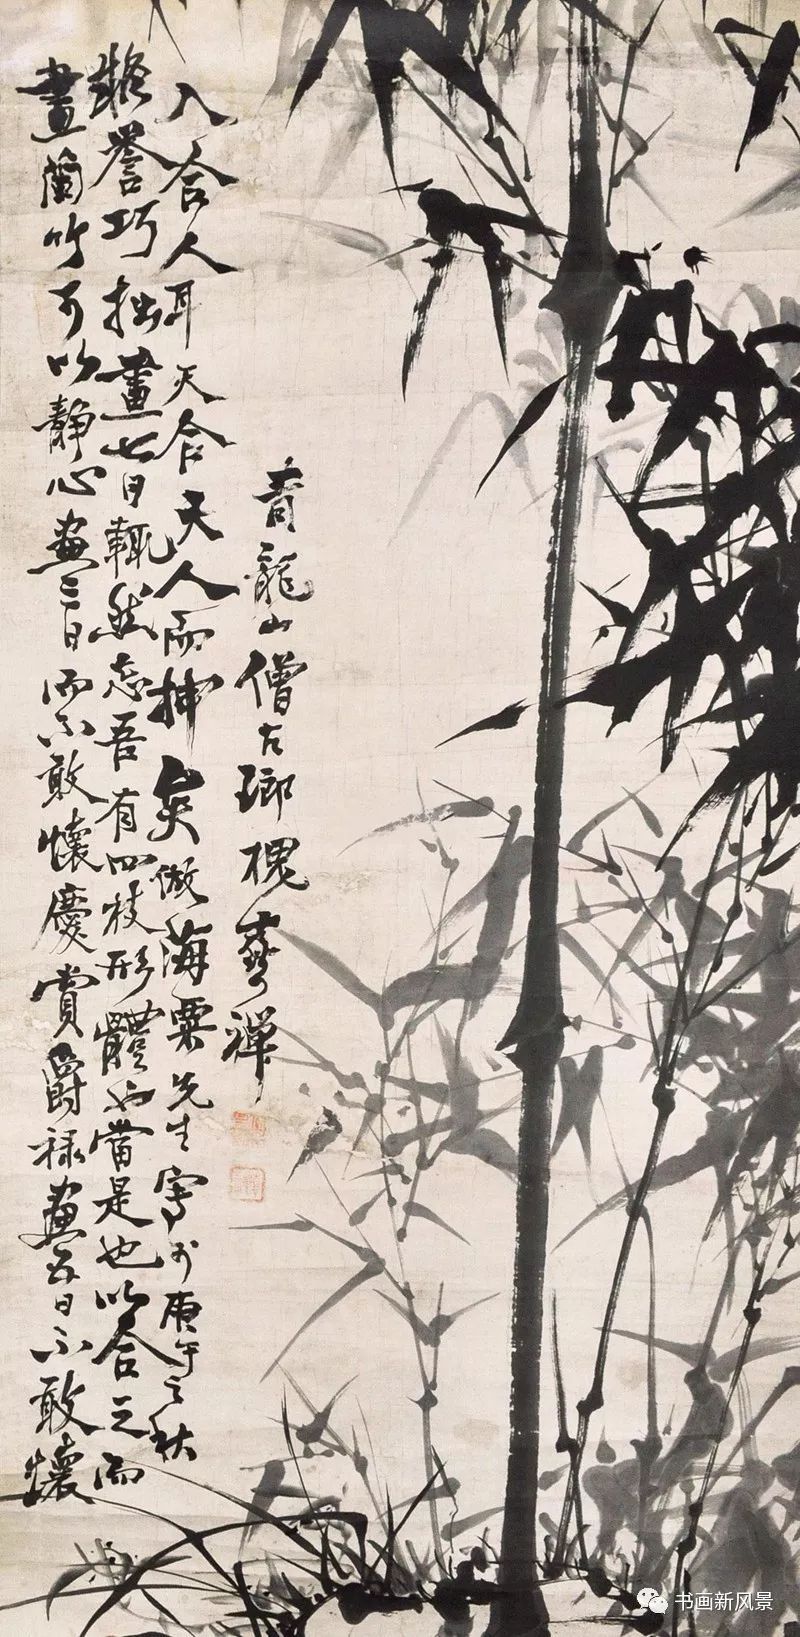 畫蘭竹可以靜心畫三日而不敢懷慶賞爵祿畫五日不敢懷
譽巧拙畫七日輒然忘吾有四枝形體也當是也以合之而
入合人耳天合天人而神矣倣海粟先生寫於庚午之秋
青龍山僧左瑯槐禪
书画新风景